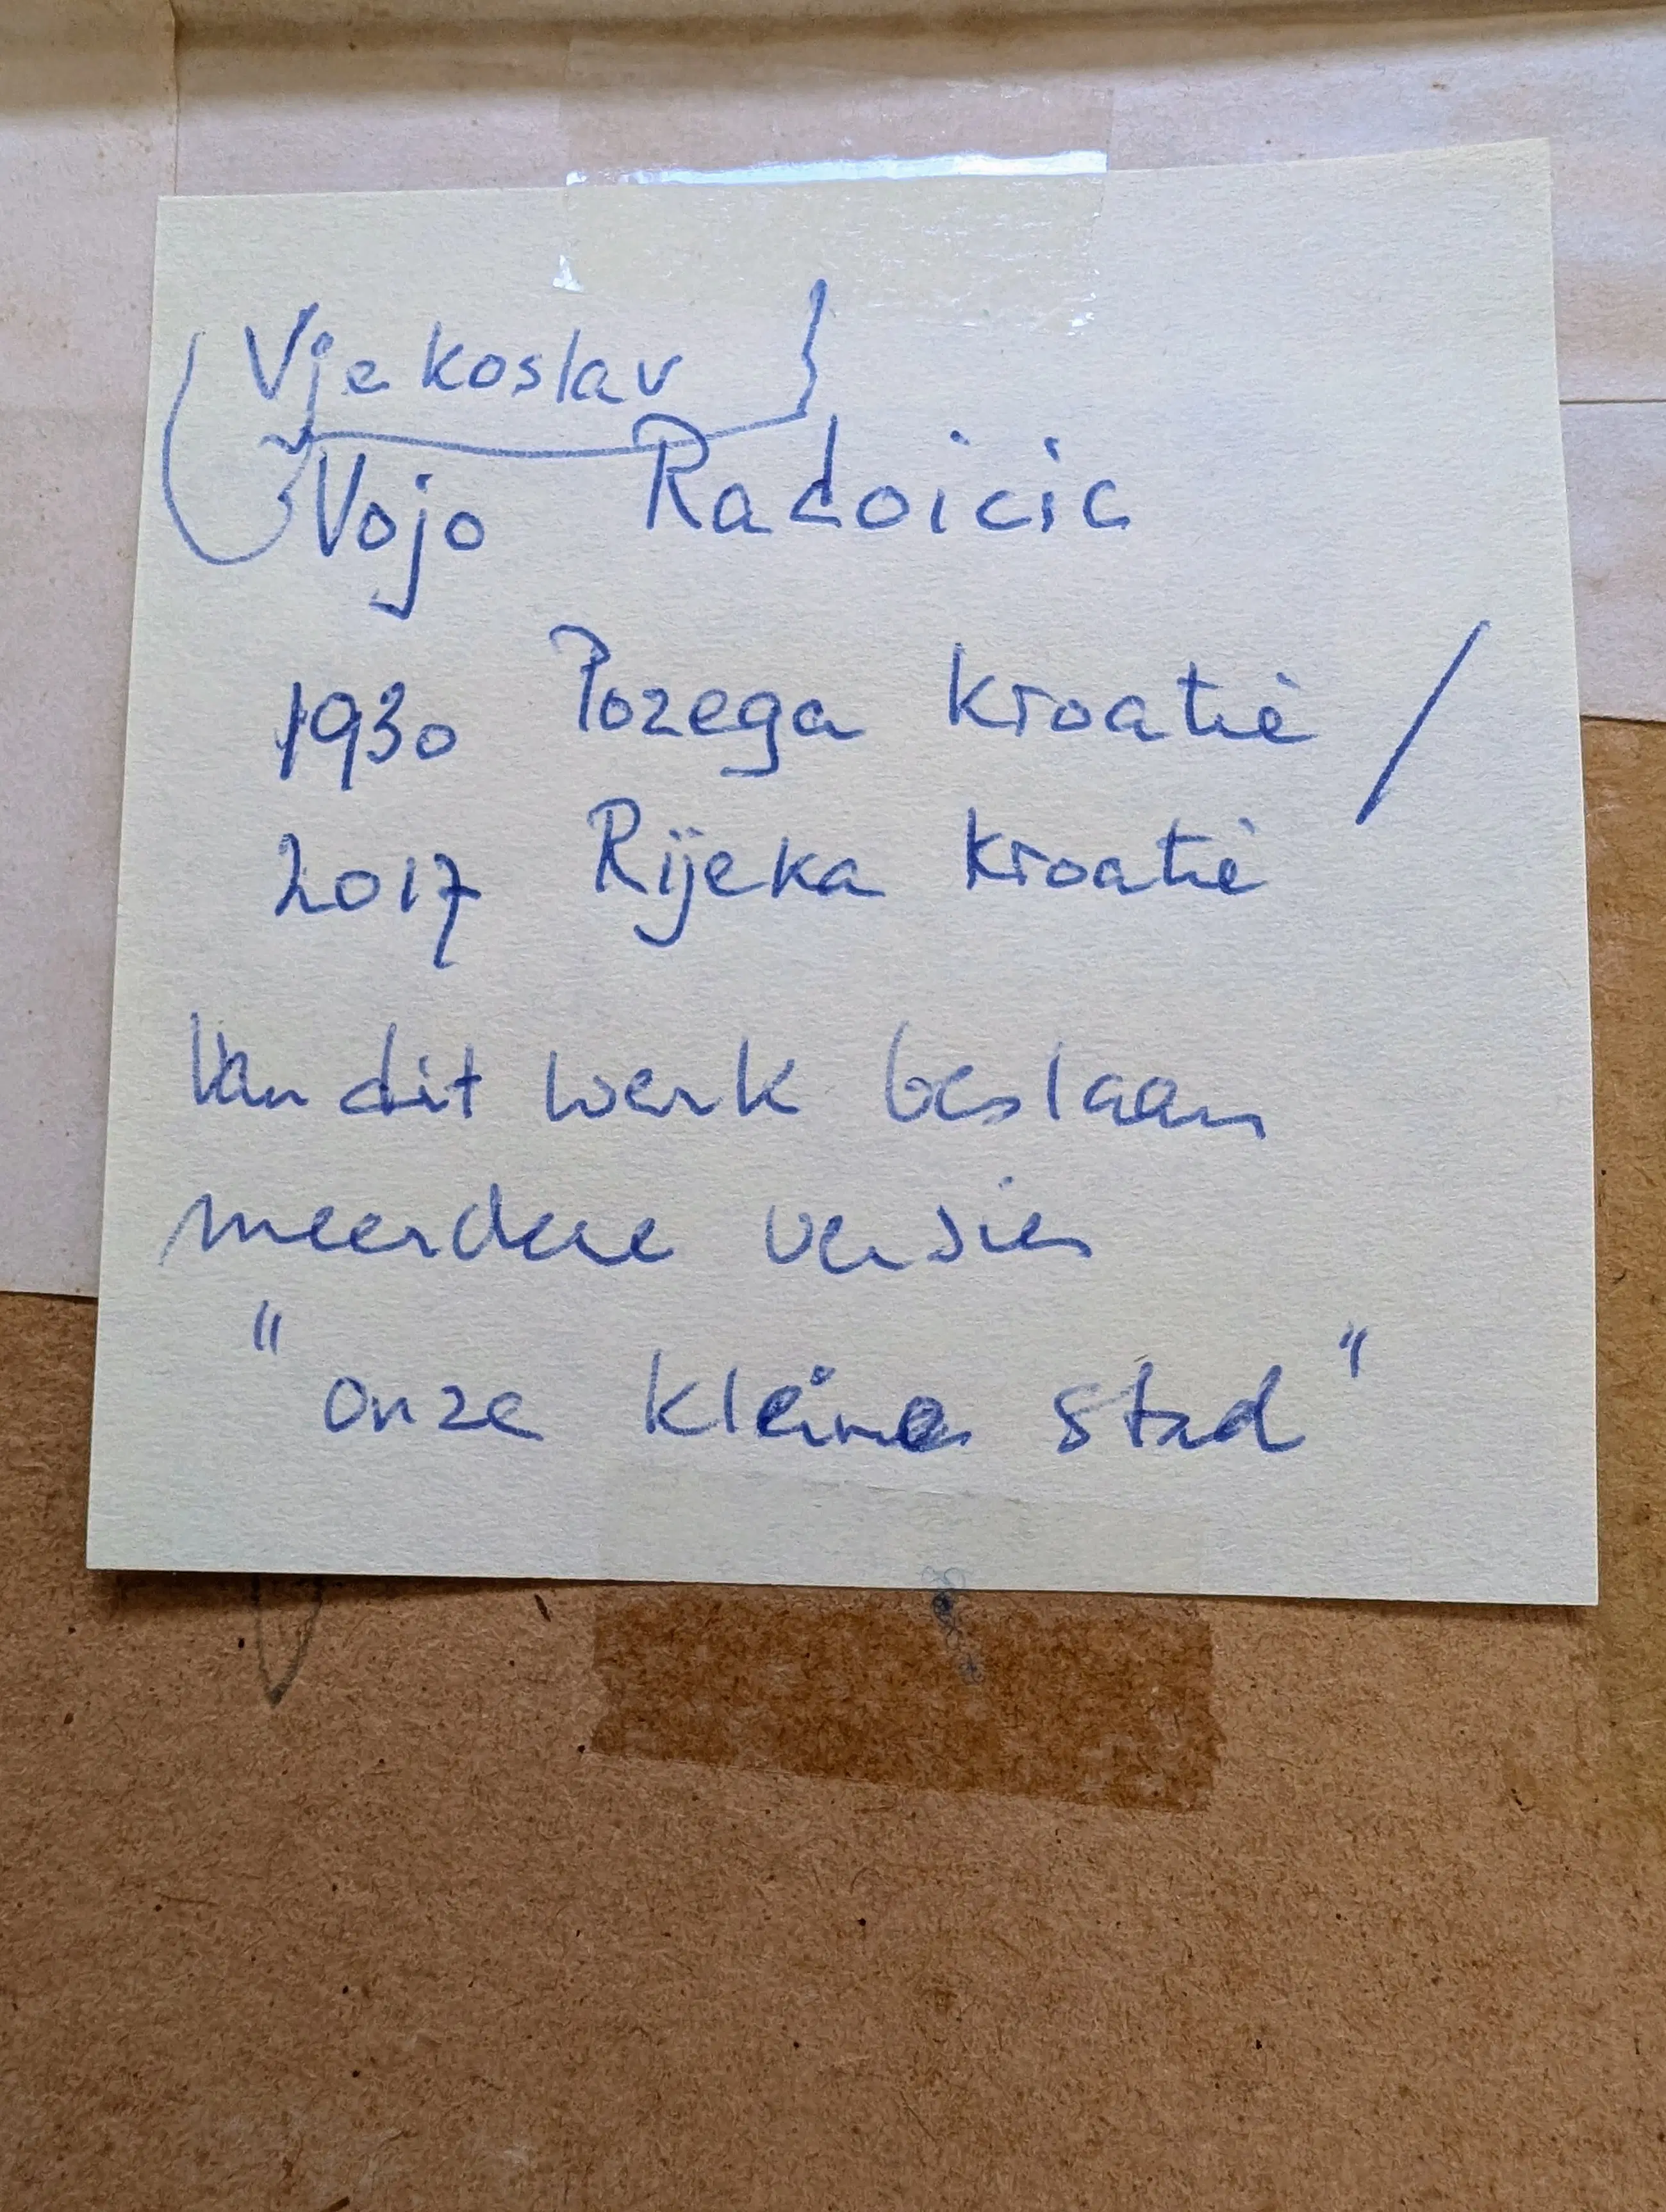 Vjekoslav
Vojo Radoicic
1930 Pozega Kroatië /
2017 Rijeka Kroatië
Van dit werk bestaan
meerdere versies
"onze kleine stad"